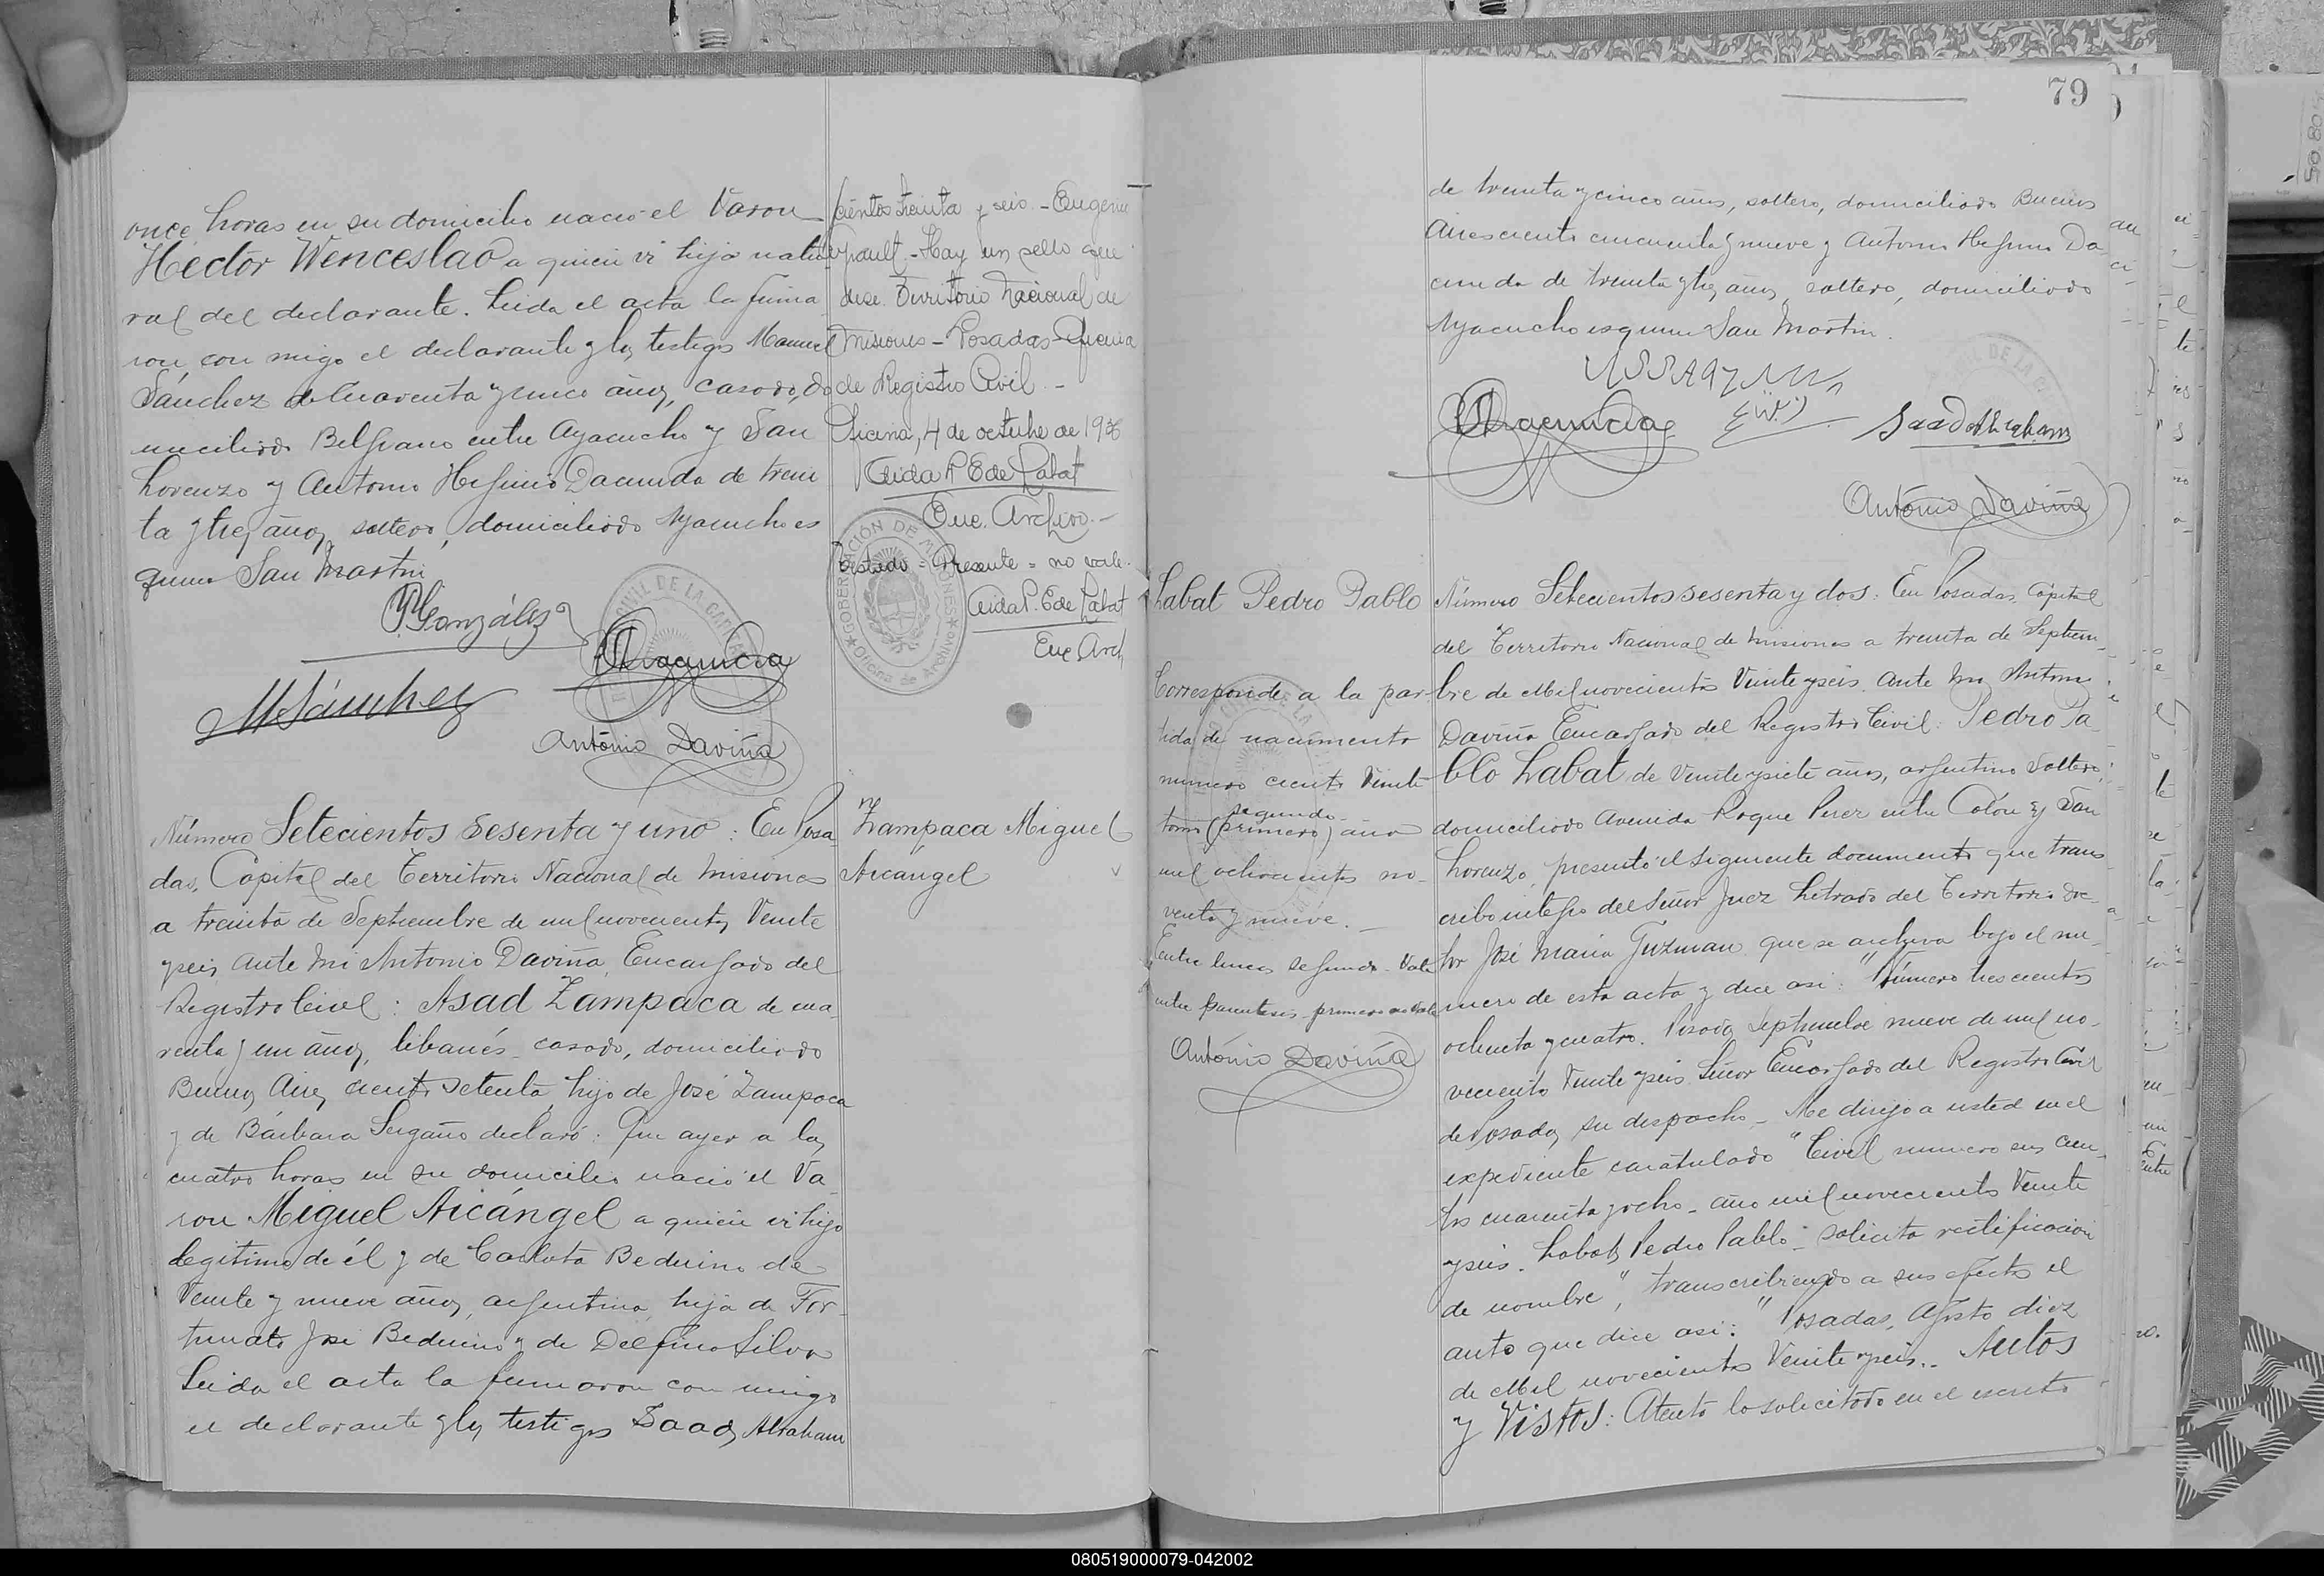 once horas en su domicilio nació el Varon
Hector Wenceslao a quien vi hijo natu
ral del declarante. Leida el acta la firma
ron con migo el declarante y los testigos Manuel
Sánchez de cuarenta y cinco años, casado, do
miciliado Belgrano entre Ayacucho y San
Lorenzo y Antonio Higinio Dacunda de trein
ta y tres años, soltero, domiciliado Ayacucho es
quina San Martin
P. González
M Sánchez
Antonio Daviña
cientos treinta y seis. - Eugenio
- Hay un sello que
dice. Territorio Nacional de
Misiones - Posadas - Oficina
de Registro Civil. -
Oficina, 4 de octubre de 19
Aida P. E de Labat
Enc. Archivo. -
Testado = Presente = no vale.
Aida P. E de Labat
Enc. Arch
GOBERNACIÓN DE MISIONES
Oficina de Archivo
Número Setecientos Sesenta y uno: En Posa
das, Capital del Territorio Nacional de Misiones
a treinta de Septiembre de mil novecientos Veinte
y seis, ante mi Antonio Daviña, Encargado del
Registro Civil: Asad Zampaca de cua
renta y un años, libanés, casado, domiciliado
Buenos Aires ciento setenta, hijo de José Zampaca
y de Bárbara declaró: Que ayer a las
cuatro horas en su domicilio nació el Va
ron Miguel Arcángel a quien vi hijo
legitimo de él y de Carlota Beduino de
Veinte y nueve años, argentina, hija de For
tunato José Beduino y de Delfina Silva
Leida el acta la firmaron con migo
el declarante y los testigos Saad Abraham
Zampaca Miguel
Arcángel
79
de treinta y cinco años, soltero, domiciliado Buenos
Aires ciento cincuenta y nueve y Antonio Higinio Da
cunda de treinta y tres años, soltero, domiciliado
Ayacucho esquina San Martin.
Saad Abraham
Antonio Daviña
Labat Pedro Pablo
Corresponde a la par
tida de nacimiento
numero ciento Veinte
segundo
tomo (primero) año
mil ochocientos no
venta y nueve. -
Entre lineas segundo - Vale
entre parentesis - primero no vale
Antonio Daviña
Número Setecientos sesenta y dos: En Posadas, Capital
del Territorio Nacional de Misiones a treinta de Septiem
bre de Mil novecientos Veinte y seis, ante mi Antonio
Daviña Encargado del Registro Civil: Pedro Pa
blo Labat de Veinte y siete años, argentino, Soltero,
domiciliado Avenida Roque Perez entre Colón y San
Lorenzo, presentó el siguiente documento que trans
cribo integro del Señor Juez Letrado del Territorio Doc
tor José Maria Guzman que se archiva bajo el nu
mero de esta acta y dice asi: "Número trescientos
ochenta y cuatro. Posadas Septiembre nueve de mil no
vecientos Veinte y seis. Señor Encargado del Registro Civil
de Posadas, su despacho - Me dirijo a usted en el
expediente caratulado "Civil numero seis cien
tos cuarenta y ocho - año mil novecientos Veinte
y seis. Labat, Pedro Pablo - solicita rectificación
de nombre", transcribiendo a sus efectos el
auto que dice asi: "Posadas, Agosto diez
de Mil novecientos Veinte y seis. - Autos
y Vistos: Atento lo solicitado en el escrito
080519000079-042002